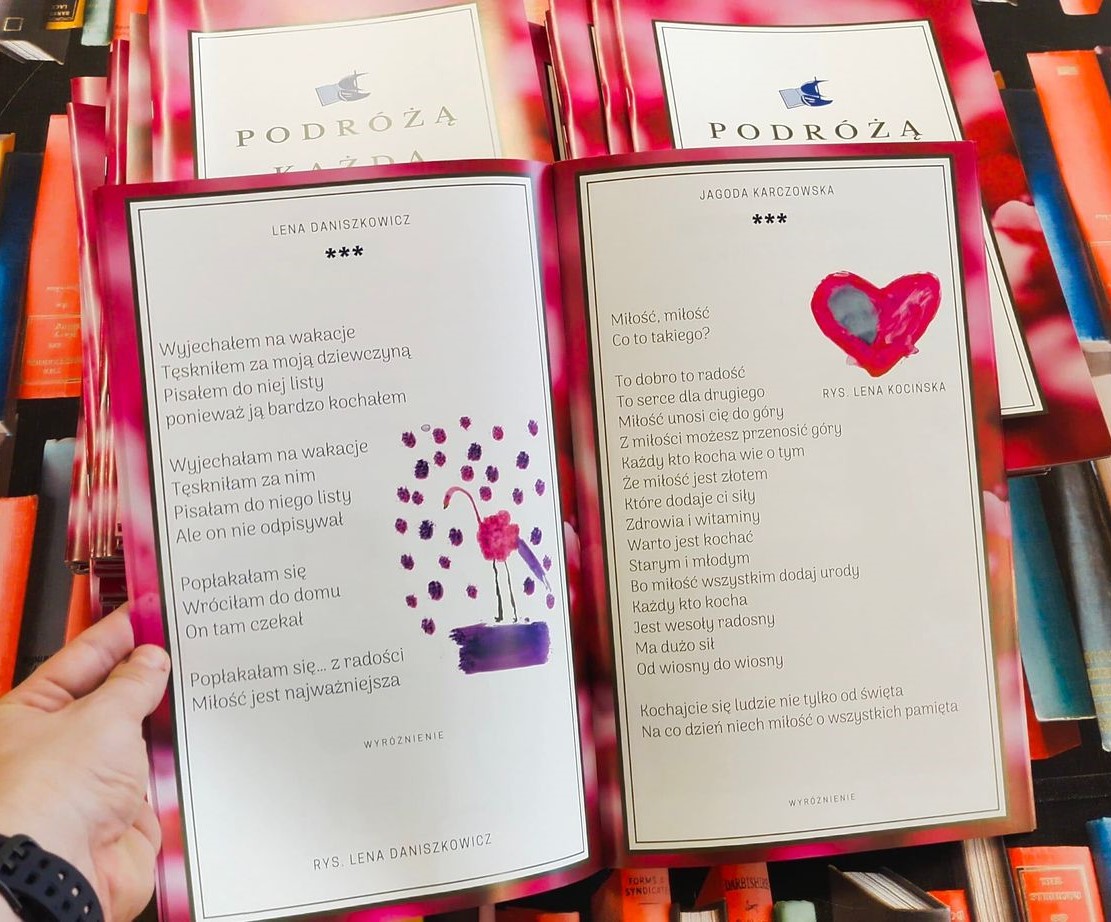 PODRÓŻĄ
KAŻDA
PODRÓŻĄ
LENA DANISZKOWICZ
***
Wyjechałem na wakacje
Tęskniłem za moją dziewczyną
Pisałem do niej listy
ponieważ ją bardzo kochałem
Wyjechałam na wakacje
Tęskniłam za nim
Pisałam do niego listy
Ale on nie odpisywał
Popłakałam się
Wróciłam do domu
On tam czekał
Popłakałam się... z radości
Miłość jest najważniejsza
WYRÓŻNIENIE
RYS. LENA DANISZKOWICZ
JAGODA KARCZOWSKA
***
Miłość, miłość
Co to takiego?
RYS. LENA KOCIŃSKA
To dobro to radość
To serce dla drugiego
Miłość unosi cię do góry
Z miłości możesz przenosić góry
Każdy kto kocha wie o tym
Że miłość jest złotem
Które dodaje ci siły
Zdrowia i witaminy
Warto jest kochać
Starym i młodym
Bo miłość wszystkim dodaj urody
Każdy kto kocha
Jest wesoły radosny
Ma dużo sił
Od wiosny do wiosny
Kochajcie się ludzie nie tylko od święta
Na co dzień niech miłość o wszystkich pamięta
WYRÓŻNIENIE
FORMS &
SYNDICATE
DARBISHIRE